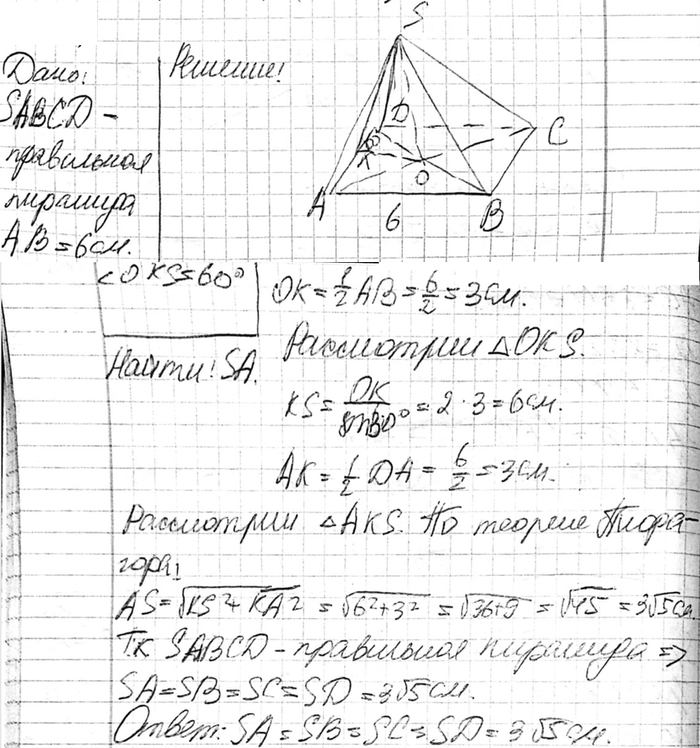 Дано:
SABCD -
правильная
пирамида
AB = 6см.
Решение!
S
D
C
K
O
A
6
B
<OKS=60°
Найти! SA.
OK = 1/2 AB = 6/2 = 3см.
Рассмотрим △OKS.
KS = OK/sin30° = 2 · 3 = 6см.
AK = 1/2 DA = 6/2 = 3см.
Рассмотрим △AKS. По теореме Пифа-
гора:
AS = √KS² + KA² = √6²+3² = √36+9 = √45 = 3√5см.
Тк SABCD - правильная пирамида =>
SA = SB = SC = SD = 3√5см.
Ответ: SA = SB = SC = SD = 3√5см.